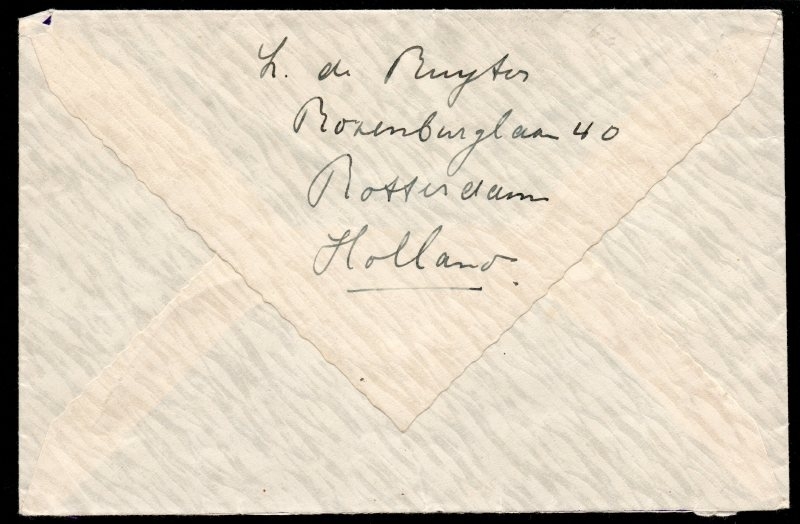 L. de Ruyter
Rozenburglaan 40
Rotterdam
Holland.